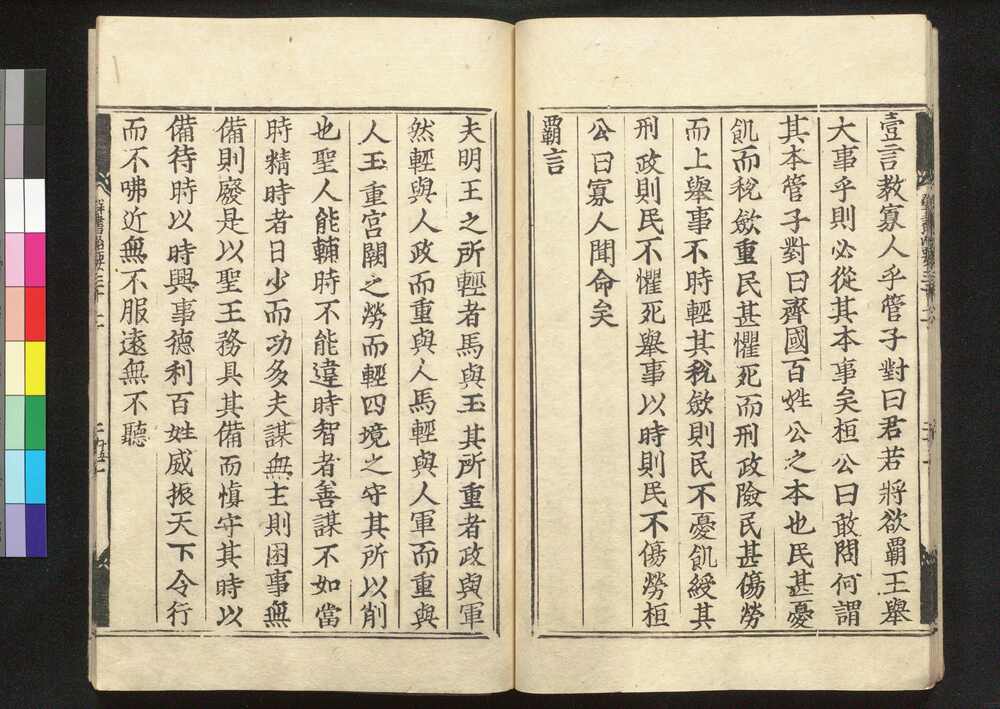 壹言教寡人乎管子對曰君若將欲覇王舉
大事乎則必從其本事矣桓公曰敢問何謂
其本管子對曰齊國百姓公之本也民甚憂
飢而稅斂重民甚懼死而刑政險民甚傷勞
而上舉事不時輕其稅斂則民不憂飢緩其
刑政則民不懼死舉事以時則民不傷勞桓
公曰寡人聞命矣
覇言
夫明王之所輕者馬與玉其所重者政與軍
然輕與人政而重與人馬輕與人軍而重與
人玉重宮闕之勞而輕四境之守其所以削
也聖人能輔時不能違時智者善謀不如當
時精時者日少而功多夫謀無主則困事無
備則廢是以聖王務具其備而愼守其時以
備待時以時興事德利百姓威振天下令行
而不咈近無不服遠無不聽